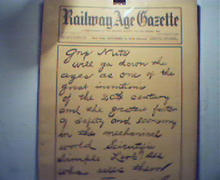 Railway Age Gazette
Grip Nuts
will go down the
ages as one of the
great inventions
of the 20th century
and the greatest factor
of safety and economy
in the mechanical
world Scientific
Simple Look
who uses them